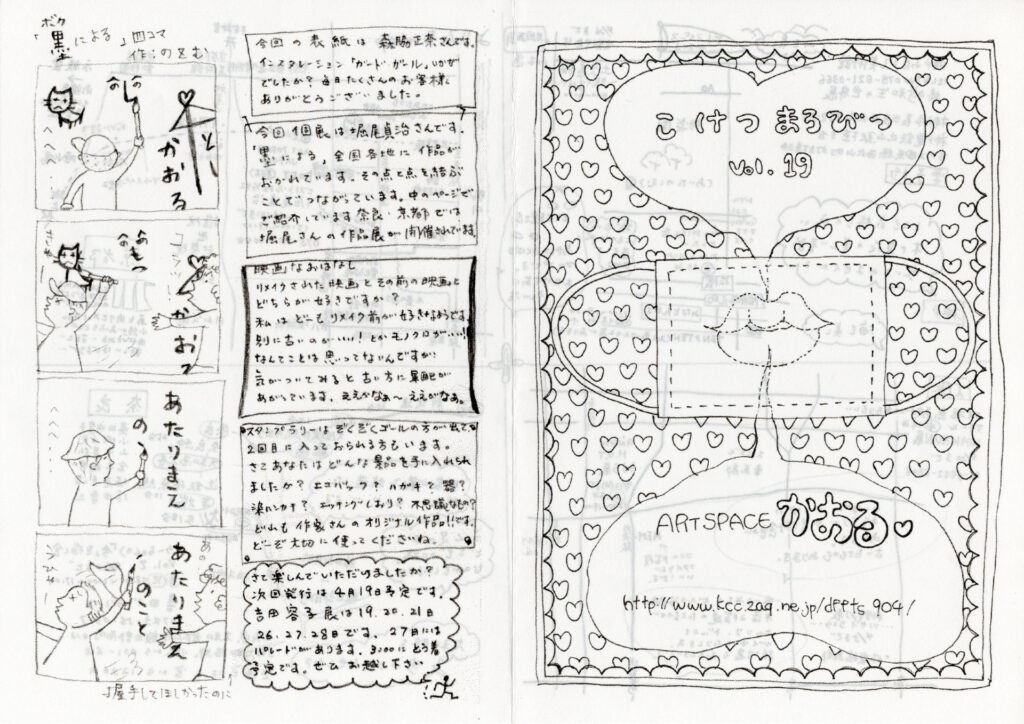 ボク
「墨による」四コマ
作：のぞむ
とかおる
あたりまえ
のこと
あたりまえ
のこと
握手してほしかったのに
今回の表紙は 森脇正奈さんです。
インスタレーション「ガードガール」いかが
でしたか？毎日たくさんのお客様、
ありがとうございました。
今回個展は堀尾貞治さんです。
「墨による」全国各地に作品が
おかれています。その点と点を結ぶ
ことでつながっています。中のページで
ご紹介しています奈良・京都では
堀尾さんの作品展が開催されています
映画なおはなし
リメイクされた映画とその前の映画と
どちらが好きですか？
私はどーもリメイク前が好きなようです。
別に古いのがいい！とかモノクロがいい！
なんてことは思ってないんですが、
気がついてみると古い方に軍配が
あがっています。ええがなぁ～ええがなぁ。
スタンプラリーはぞくぞくゴールの方が出て、
2回目に入っておられる方もいます。
さてあなたはどんな景品を手に入れられ
ましたか？エコバック？ハガキ？器？
染ハンカチ？エッチングしおり？不思議なもの？
どれも作家さんのオリジナル作品!!です。
どーぞ大切に使ってくださいね。
さて楽しんでいただけましたか？
次回発行は4月19日予定です。
吉田容子展は19.20.21日
26.27.28日です。27日には
パレードがあります。3:00にとう着
予定です。ぜひお越し下さい
こけつまろびつ
vol.19
ART SPACE かおる
http://www.kcc.zaq.ne.jp/dffts904/